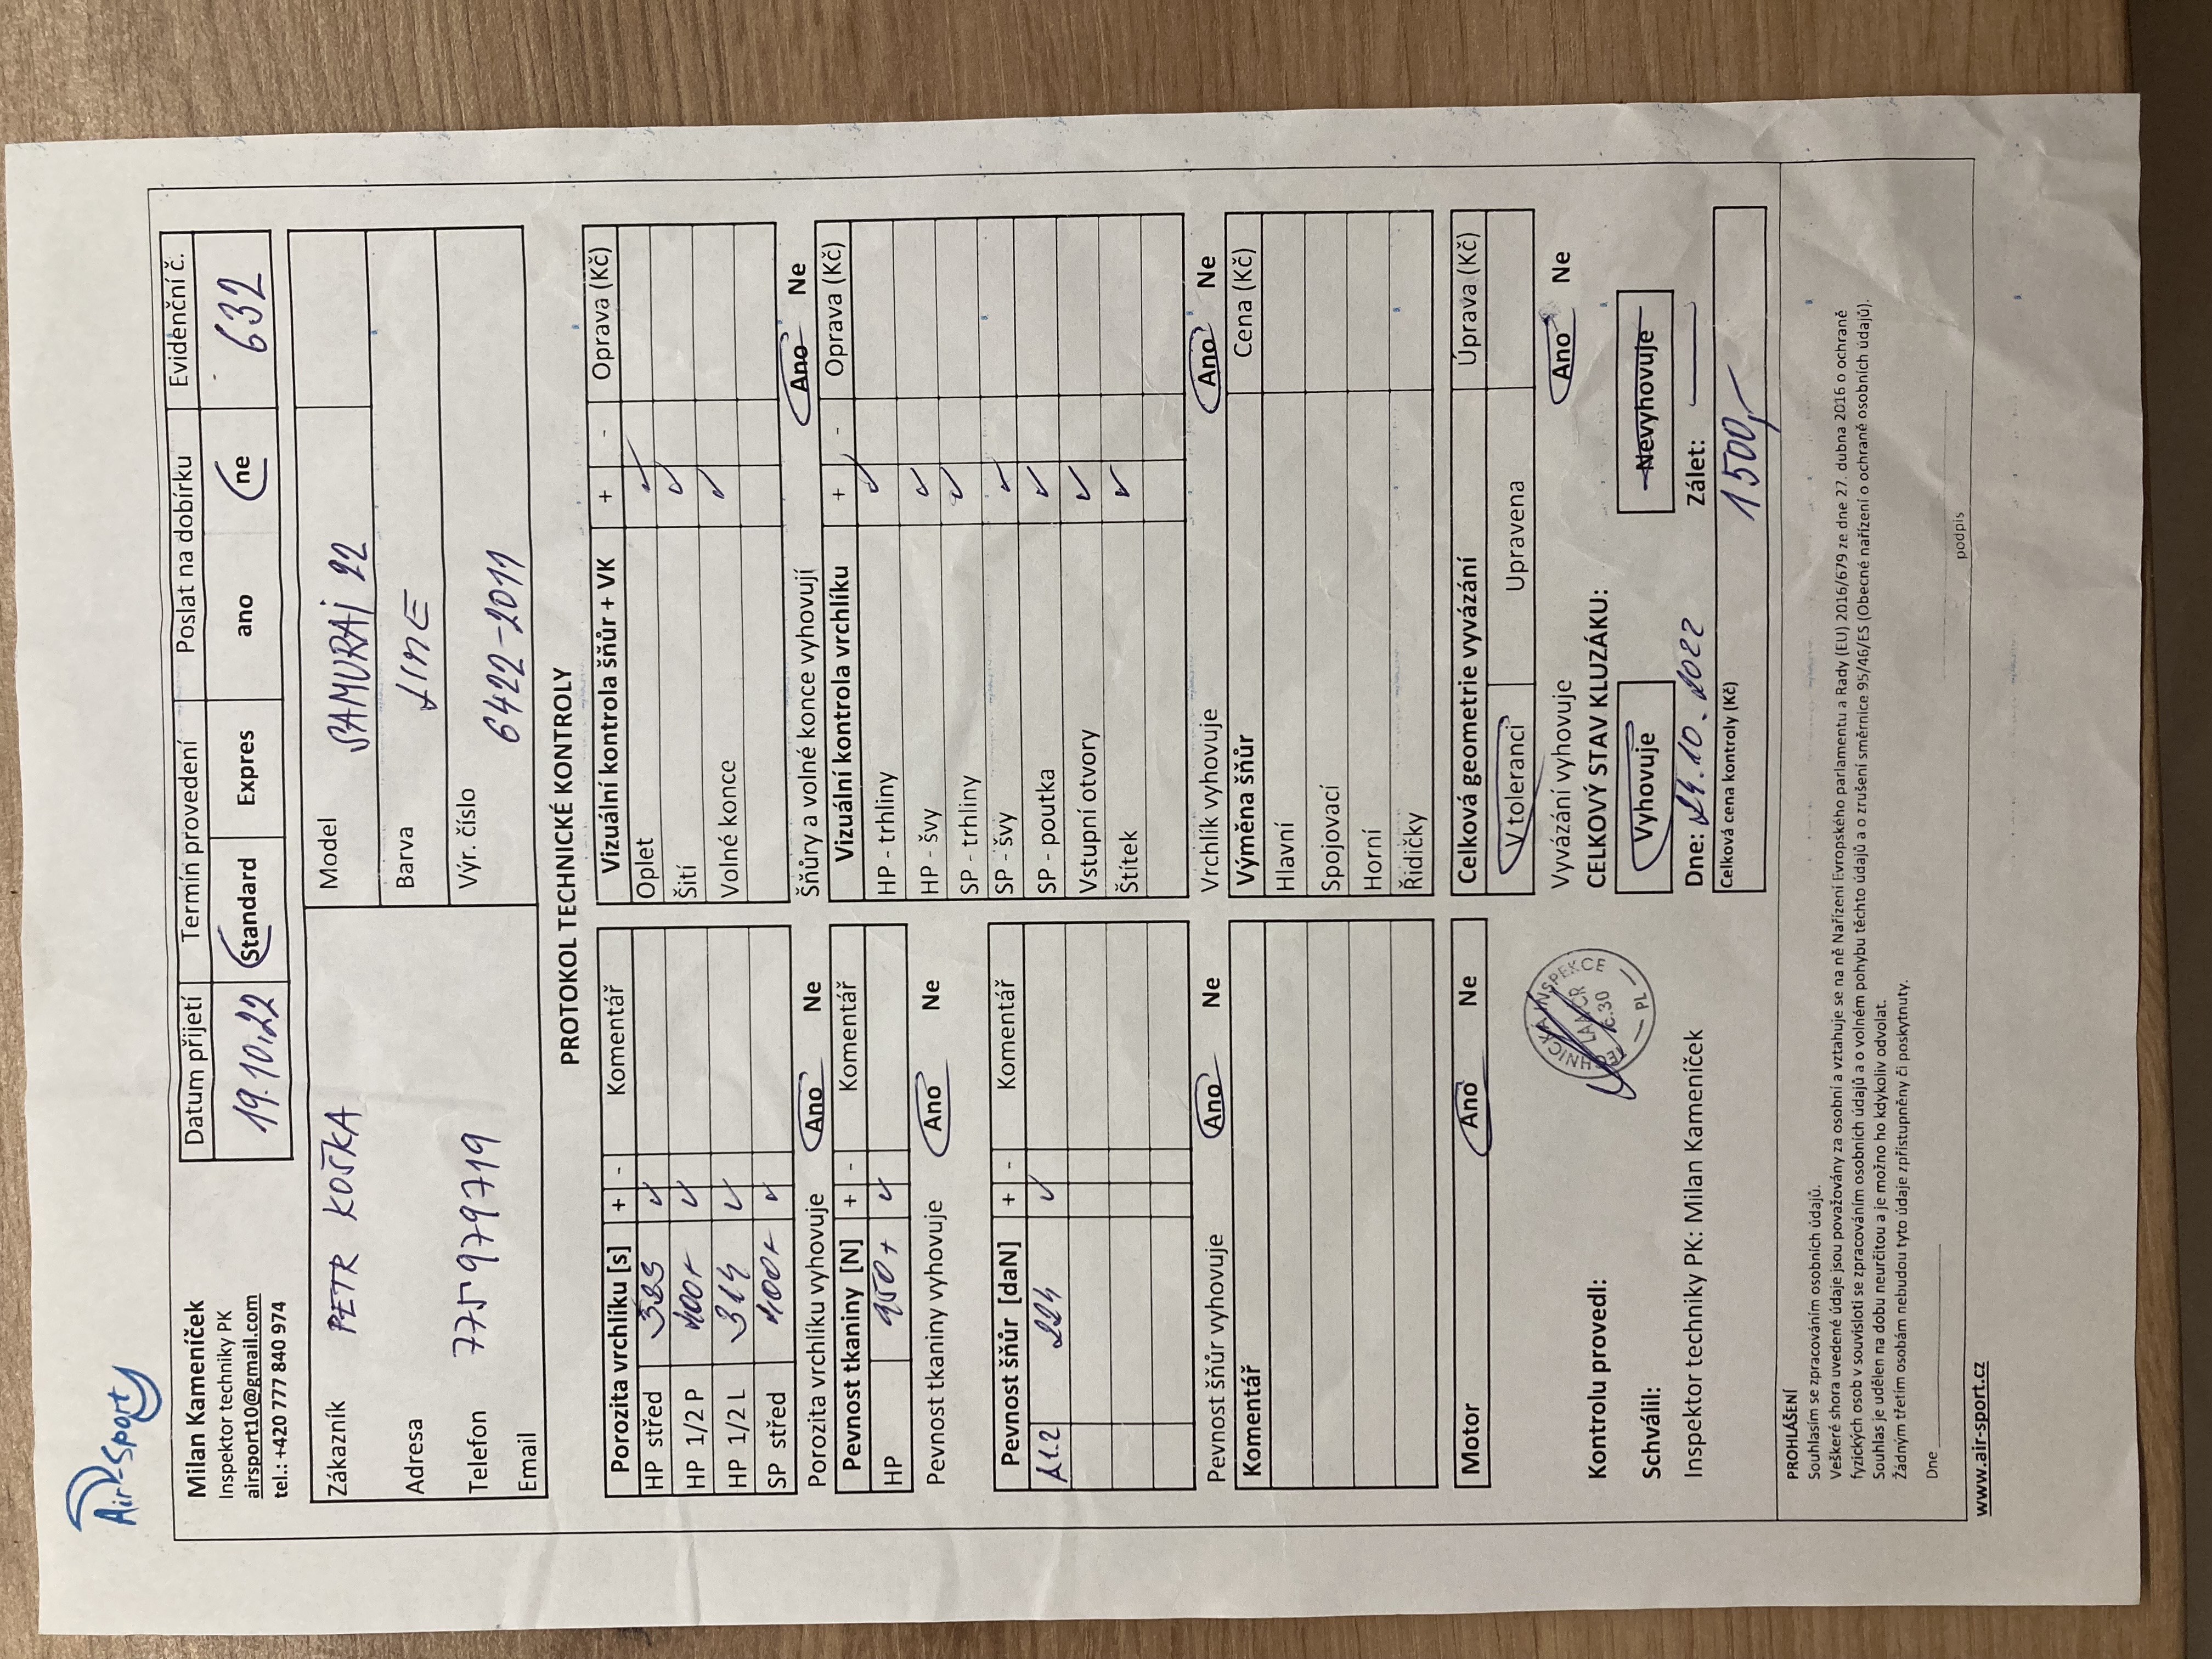 Air-Sport
Milan Kameníček
Inspektor techniky PK
airsport10@gmail.com
tel.: +420 777 840 974
Datum přijetí Termín provedení Poslat na dobírku Evidenční č.
19.10.22 Standard Expres ano ne 632
Zákazník PETR KOŠKA
Adresa
Telefon 775979719
Email
Model SAMURAI 22
Barva LIME
Výr. číslo 6422-2011
PROTOKOL TECHNICKÉ KONTROLY
Porozita vrchlíku [s] + - Komentář
HP střed ✓
HP 1/2 P 400+ ✓
HP 1/2 L 314 ✓
SP střed 400+ ✓
Porozita vrchlíku vyhovuje Ano Ne
Pevnost tkaniny [N] + - Komentář
HP 950+ ✓
Pevnost tkaniny vyhovuje Ano Ne
Pevnost šňůr [daN] + - Komentář
A1.2 224 ✓
Pevnost šňůr vyhovuje Ano Ne
Komentář
Motor Ano Ne
Vizuální kontrola šňůr + VK + - Oprava (Kč)
Oplet ✓
Šití ✓
Volné konce ✓
Šňůry a volné konce vyhovují Ano Ne
Vizuální kontrola vrchlíku + - Oprava (Kč)
HP - trhliny ✓
HP - švy ✓
SP - trhliny ✓
SP - švy ✓
SP - poutka ✓
Vstupní otvory ✓
Štítek ✓
Vrchlík vyhovuje Ano Ne
Výměna šňůr Cena (Kč)
Hlavní
Spojovací
Horní
Řidičky
Celková geometrie vyvázání Úprava (Kč)
V toleranci Upravena
Vyvázání vyhovuje Ano Ne
CELKOVÝ STAV KLUZÁKU:
Vyhovuje Nevyhovuje
Dne: 24.10.2022 Zálet: —
Celková cena kontroly (Kč) 1500,-
Kontrolu provedl:
TECHNICKÁ INSPEKCE
LAA ČR
č.30
PL
Schválil:
Inspektor techniky PK: Milan Kameníček
PROHLÁŠENÍ
Souhlasím se zpracováním osobních údajů.
Veškeré shora uvedené údaje jsou považovány za osobní a vztahuje se na ně Nařízení Evropského parlamentu a Rady (EU) 2016/679 ze dne 27. dubna 2016 o ochraně
fyzických osob v souvisloti se zpracováním osobních údajů a o volném pohybu těchto údajů a o zrušení směrnice 95/46/ES (Obecné nařízení o ochraně osobních údajů).
Souhlas je udělen na dobu neurčitou a je možno ho kdykoliv odvolat.
Žádným třetím osobám nebudou tyto údaje zpřístupněny či poskytnuty.
Dne
podpis
www.air-sport.cz